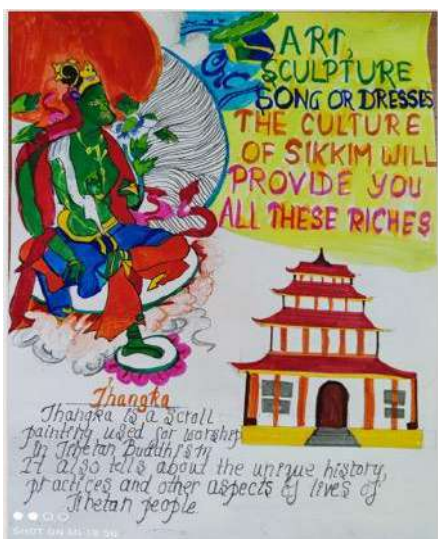 ART,
SCULPTURE
SONG OR DRESSES
THE CULTURE
OF SIKKIM WILL
PROVIDE YOU
ALL THESE RICHES
Thangka
Thangka is a scroll
painting used for worship
in Tibetan Buddhism
It also tells about the unique history,
practices and other aspects of lives of
Tibetan people.
SHOT ON